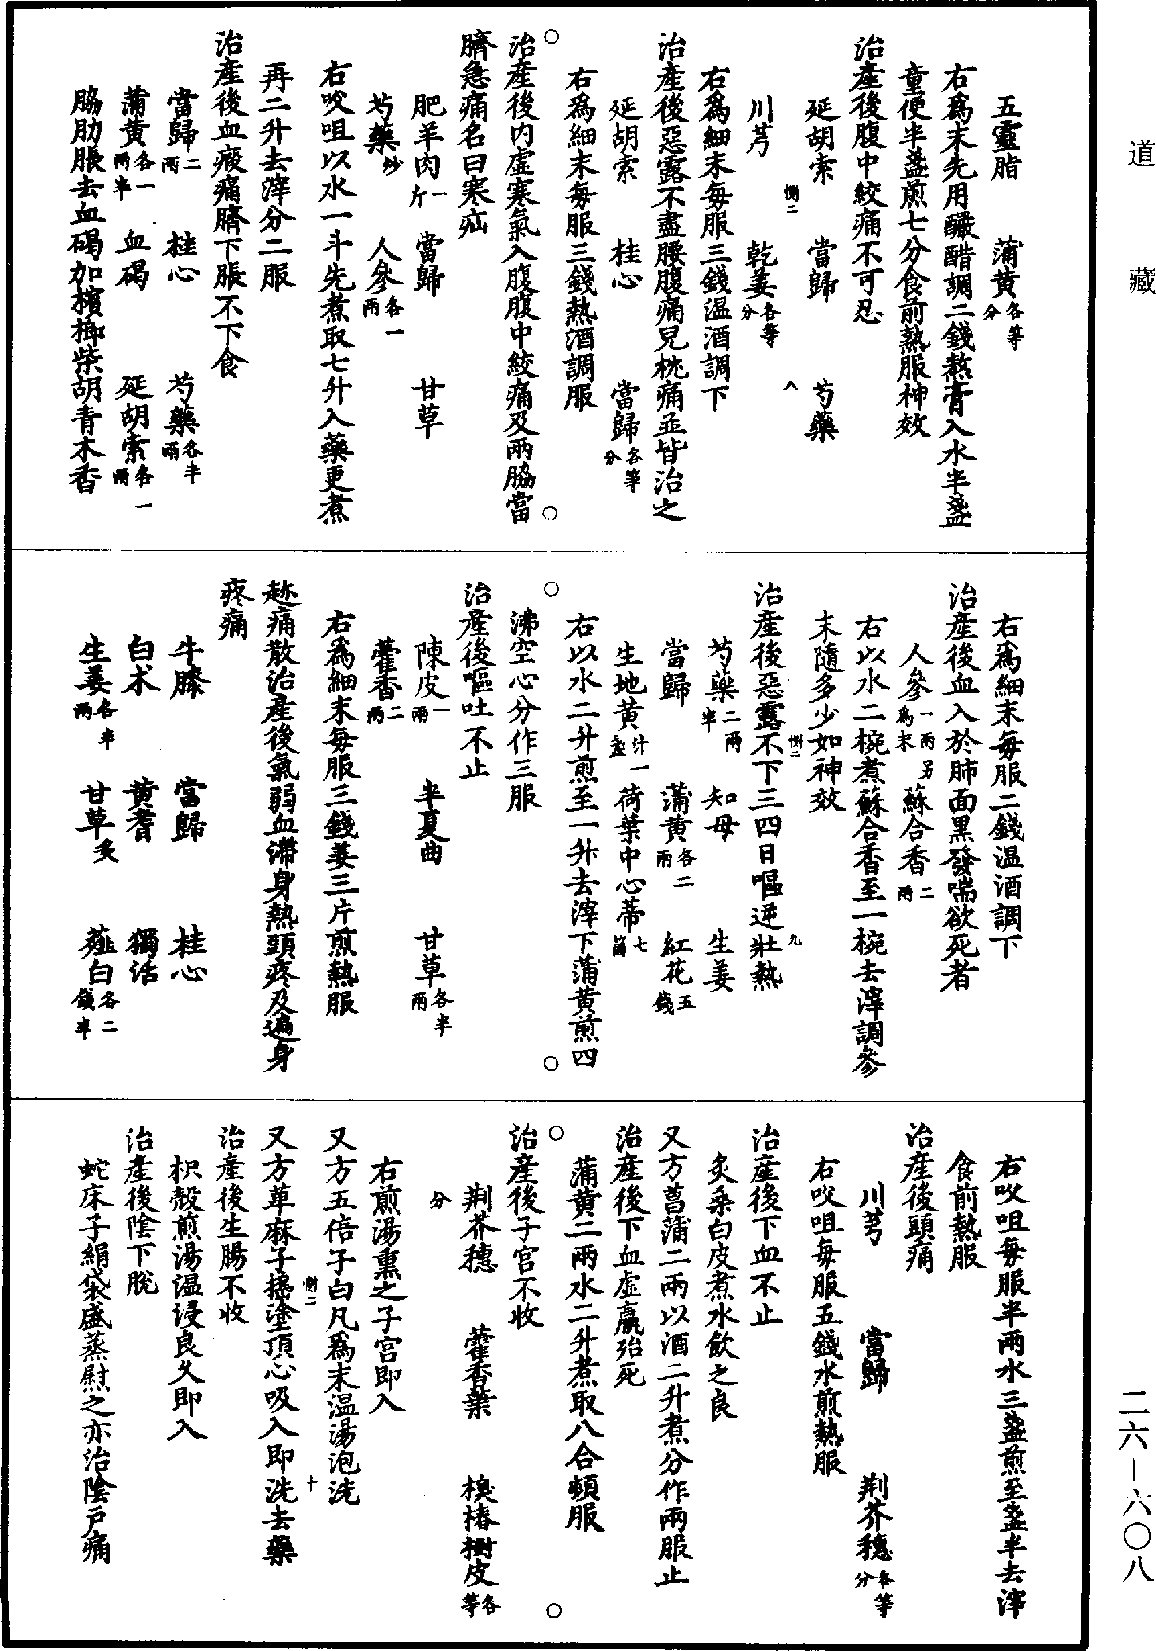 道藏
五靈脂　蒲黃各等分
右爲末先用釅醋調二錢熬膏入水半盞
童便半盞煎七分食前熱服神效
治產後腹中絞痛不可忍
延胡索　當歸　芍藥
惻二　八
川芎　乾姜各等分
右爲細末每服三錢温酒調下
治產後惡露不盡腰腹痛兒枕痛並皆治之
延胡索　桂心　當歸各等分
右爲細末每服三錢熱酒調服
治產後內虛寒氣入腹腹中絞痛及兩脇當
臍急痛名曰寒疝
肥羊肉一斤　當歸　甘草
芍藥炒　人參各一兩
右㕮咀以水一斗先煮取七升入藥更煮
再二升去滓分二服
治產後血瘕痛臍下脹不下食
當歸二兩　桂心　芍藥各半兩
蒲黃各一兩半　血碣　延胡索各一兩
脇肋脹去血碣加檳榔柴胡青木香
右爲細末每服二錢温酒調下
治產後血入於肺面黑發喘欲死者
人參一兩另爲末　蘇合香二兩
右以水二椀煮蘇合香至一椀去滓調參
末隨多少如神效
惻二　九
治產後惡露不下三四日嘔逆壯熱
芍藥二兩半　知母　生姜
當歸　蒲黃各二兩　紅花五錢
生地黃汁一盞　荷葉中心蒂七箇
右以水二升煎至一升去滓下蒲黃煎四
沸空心分作三服
治產後嘔吐不止
陳皮一兩　半夏曲　甘草各半兩
藿香二兩
右爲細末每服三錢姜三片煎熱服
趂痛散治產後氣弱血滯身熱頭疼及遍身
疼痛
牛膝　當歸　桂心
白朮　黃耆　獨活
生姜各半兩　甘草炙　薤白各二錢半
右㕮咀每服半兩水三盞煎至盞半去滓
食前熱服
治產後頭痛
川芎　當歸　荆芥穗各等分
右㕮咀每服五錢水煎熱服
治產後下血不止
炙桑白皮煮水飲之良
又方菖蒲二兩以酒二升煮分作兩服止
治產後下血虛羸殆死
蒲黃二兩水二升煮取八合頓服
治產後子宮不收
荆芥穗　藿香葉　樗椿樹皮各等
分
右煎湯熏之子宮即入
又方五倍子白凡爲末温湯泡洗
惻二　十
又方草麻子搗塗頂心吸入即洗去藥
治產後生腸不收
枳殼煎湯温浸良久即入
治產後陰下脫
蛇床子絹袋盛蒸熨之亦治陰戶痛
二六—六〇八